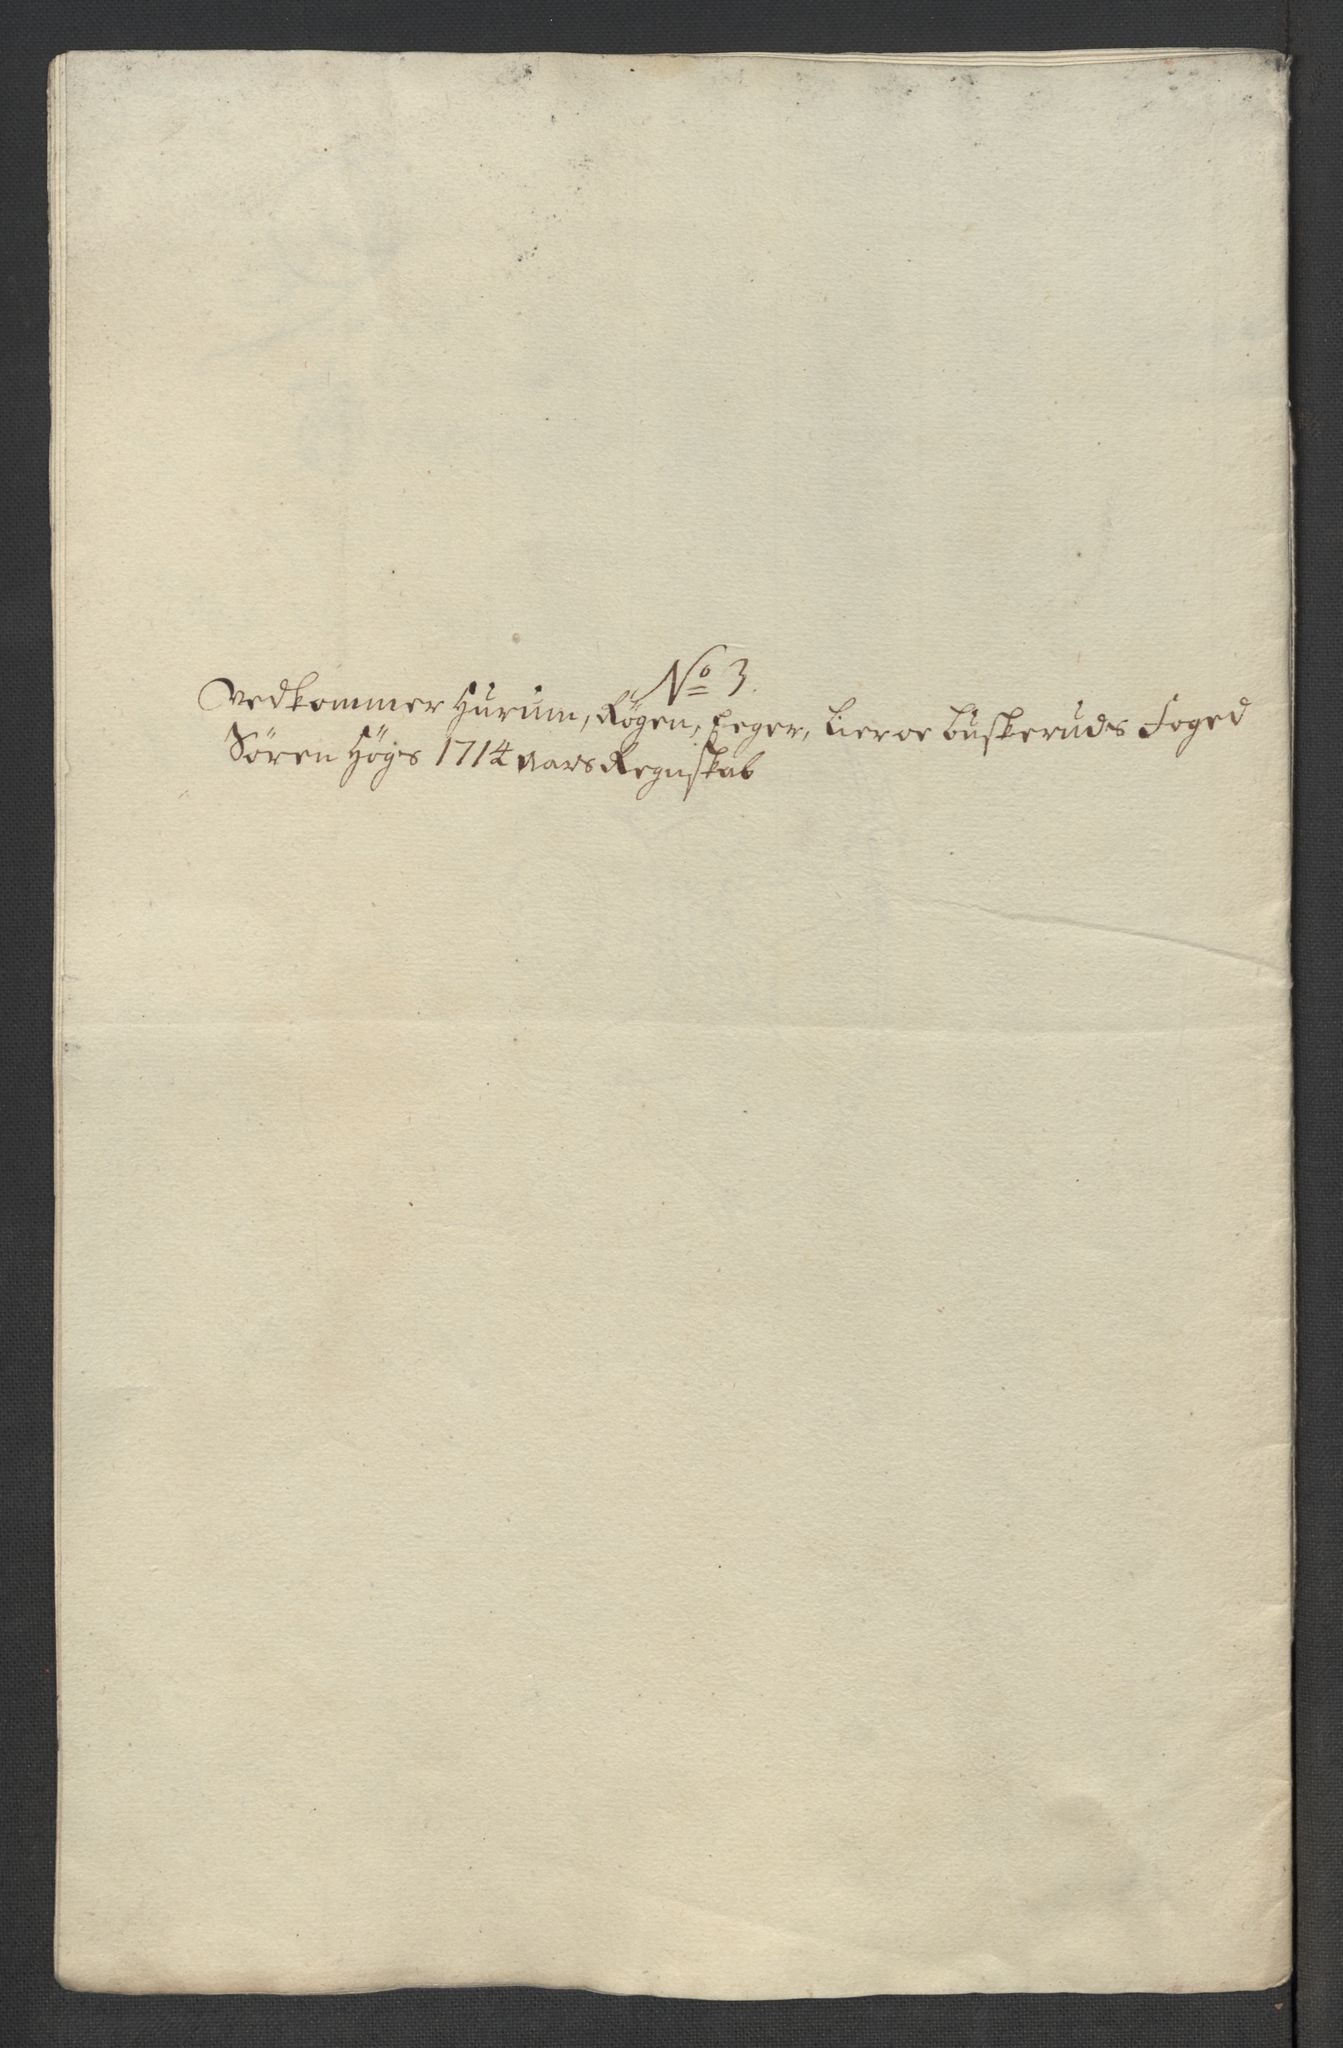 No 3.
Vedkommer Hurum, Røgen, Eeger, Lier oc Buskeruds Foged
Søren Høgs 1714 aars Regnskab